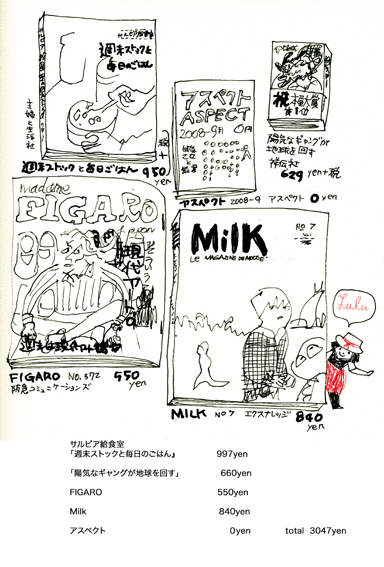 サルビア給食室
週末ストックと
毎日のごはん
主婦と生活社
週末ストックと毎日ごはん 950
yen
+税
アスペクト
ASPECT
2008-9月 0円
アスペクト 2008-9 アスペクト 0 yen
祝
陽気なギャングが
地球を回す
祥伝社
629 yen+税
madame
FIGARO
japon
現代アート
FIGARO NO.372 550
阪急コミュニケーションズ yen
MilK
NO 7
LE MAGAZINE DE MODE
MILK NO 7 エクスナレッジ 840
yen
Lulu
サルビア給食室
「週末ストックと毎日のごはん』 997yen
「陽気なギャングが地球を回す」 660yen
FIGARO 550yen
Milk 840yen
アスペクト 0yen total 3047yen